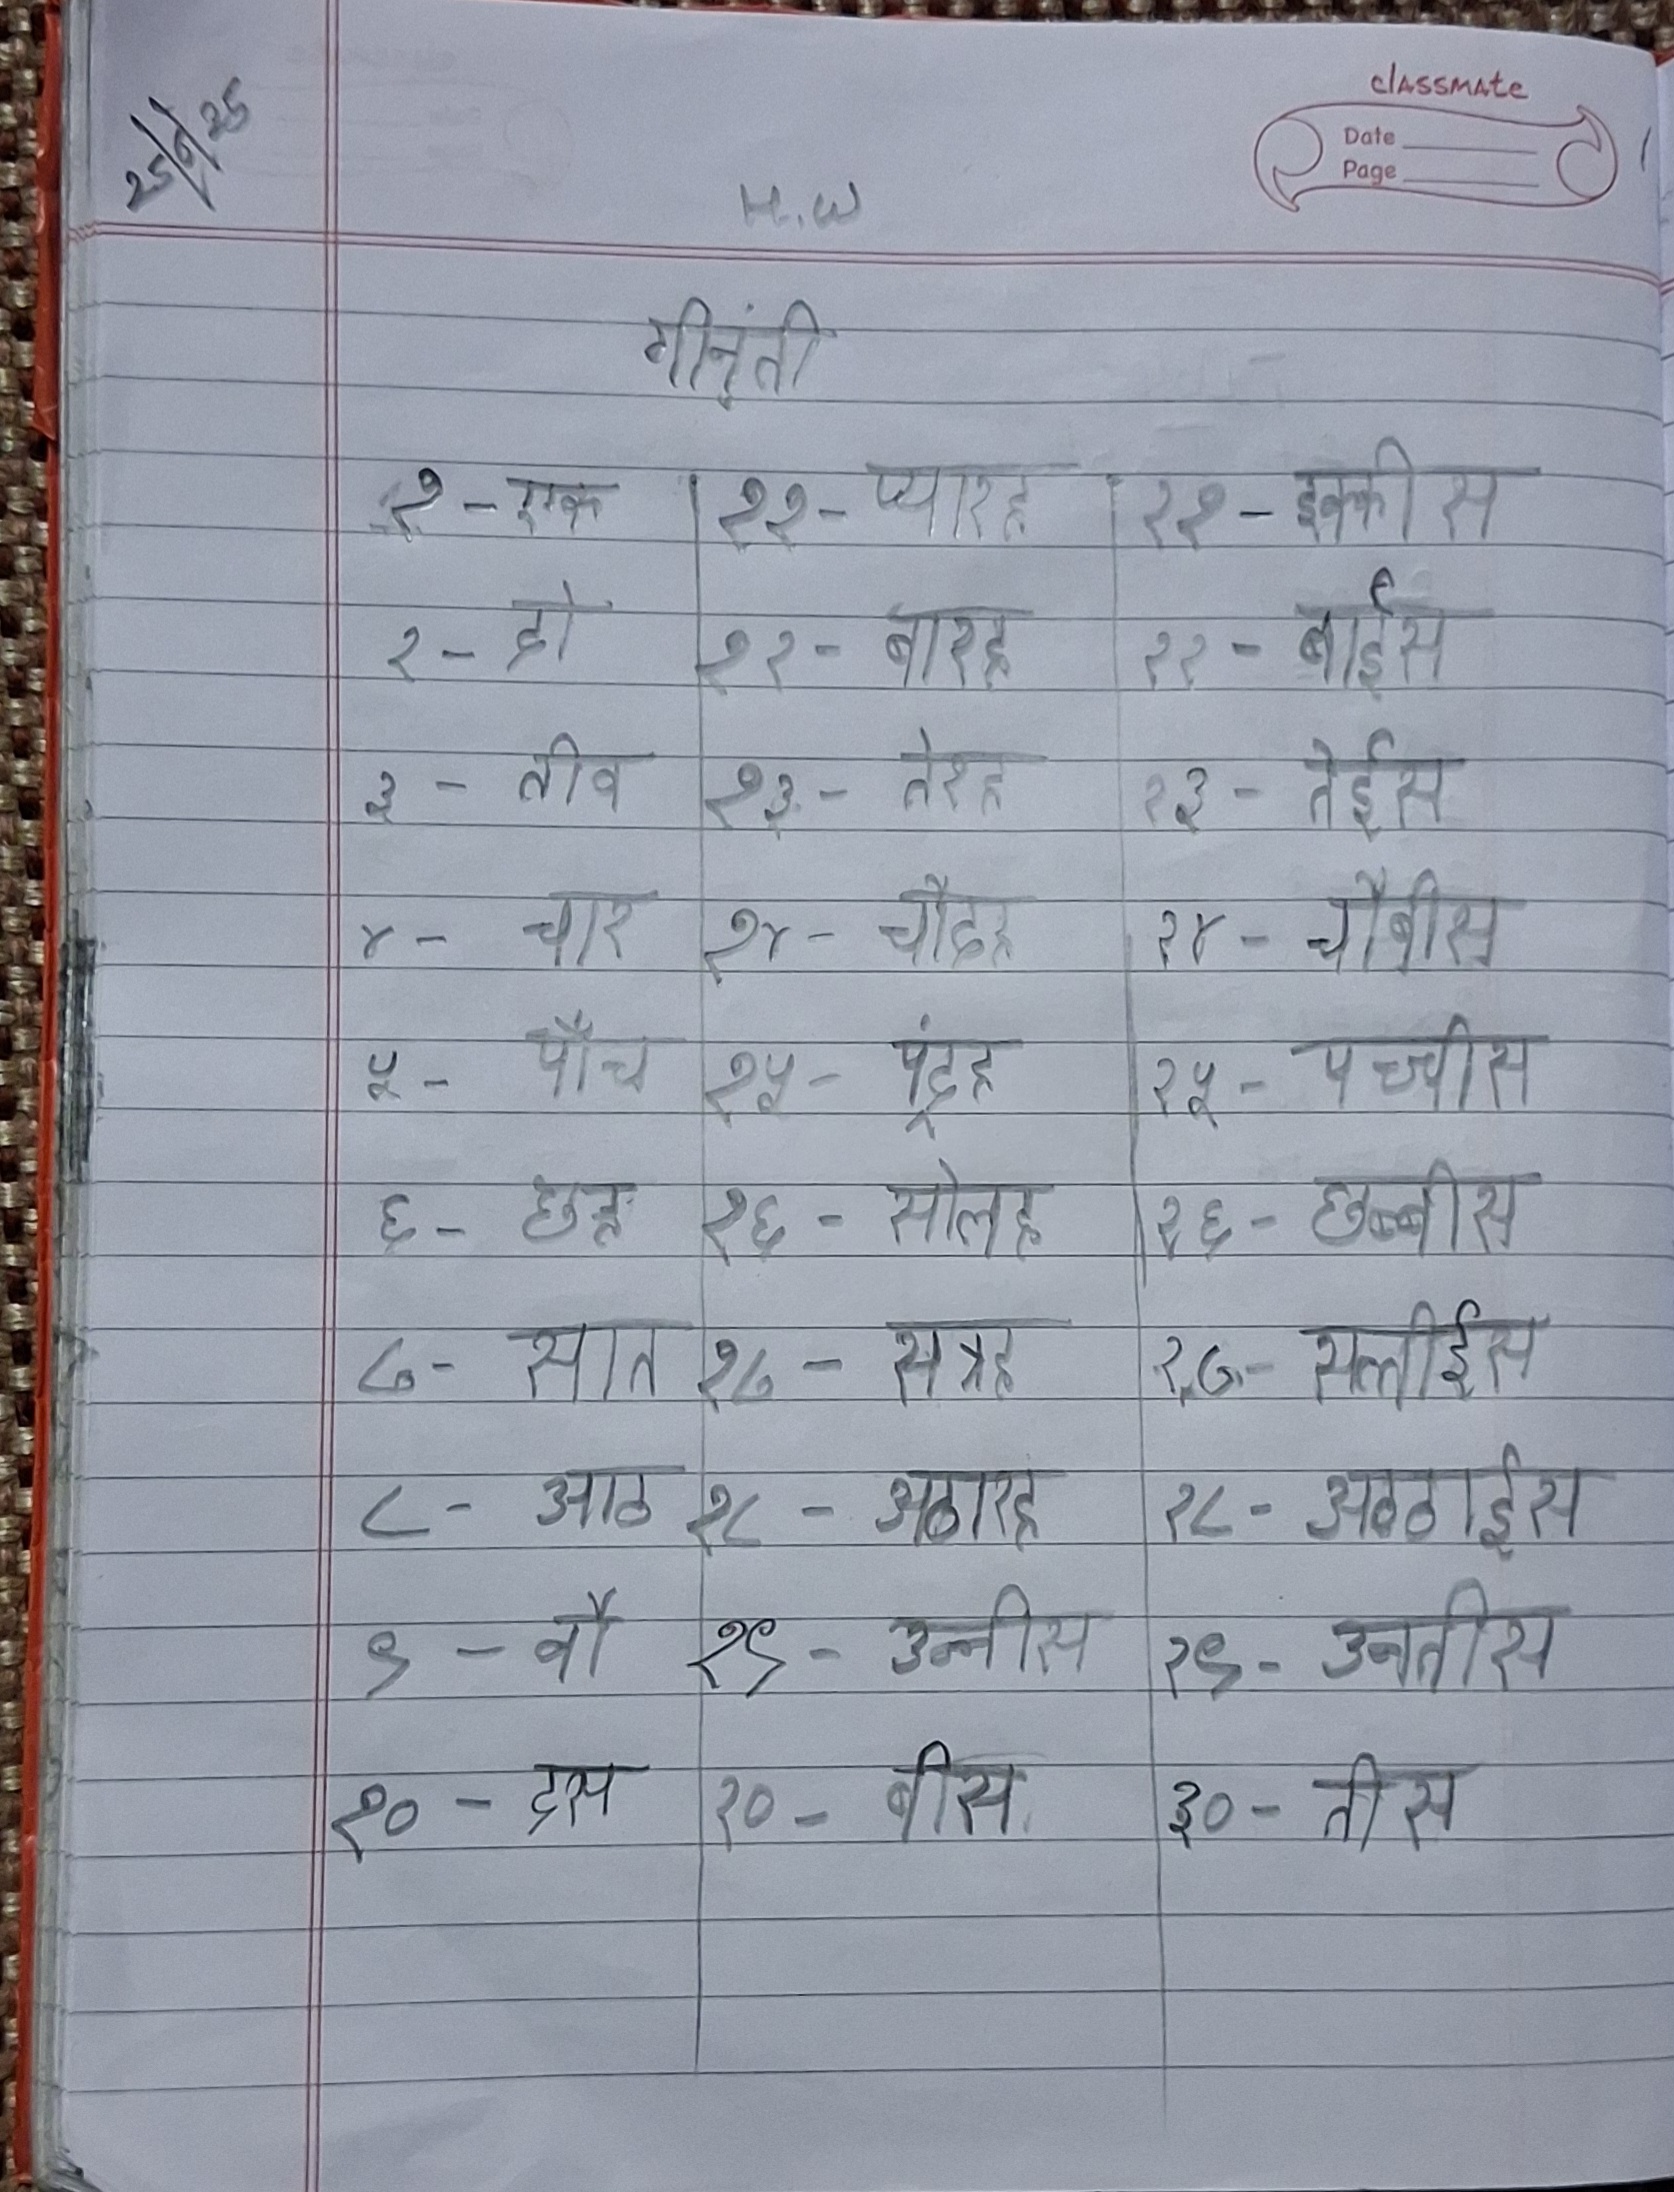 classmate
Date
Page
25/6/25
H.W
गीनंती
१ - एक ११ - ग्यारह २१ - इक्कीस
२ - दो १२ - बारह २२ - बाईस
३ - तीन १३ - तेरह २३ - तेईस
४ - चार १४ - चौदह २४ - चौबीस
५ - पाँच १५ - पंद्रह २५ - पच्चीस
६ - छह १६ - सोलह २६ - छब्बीस
७ - सात १७ - सत्रह २७ - सत्तीईस
८ - आठ १८ - अठारह २८ - अठठाईस
९ - नौ १९ - उन्नीस २९ - उनतीस
१० - दस २० - बीस ३० - तीस